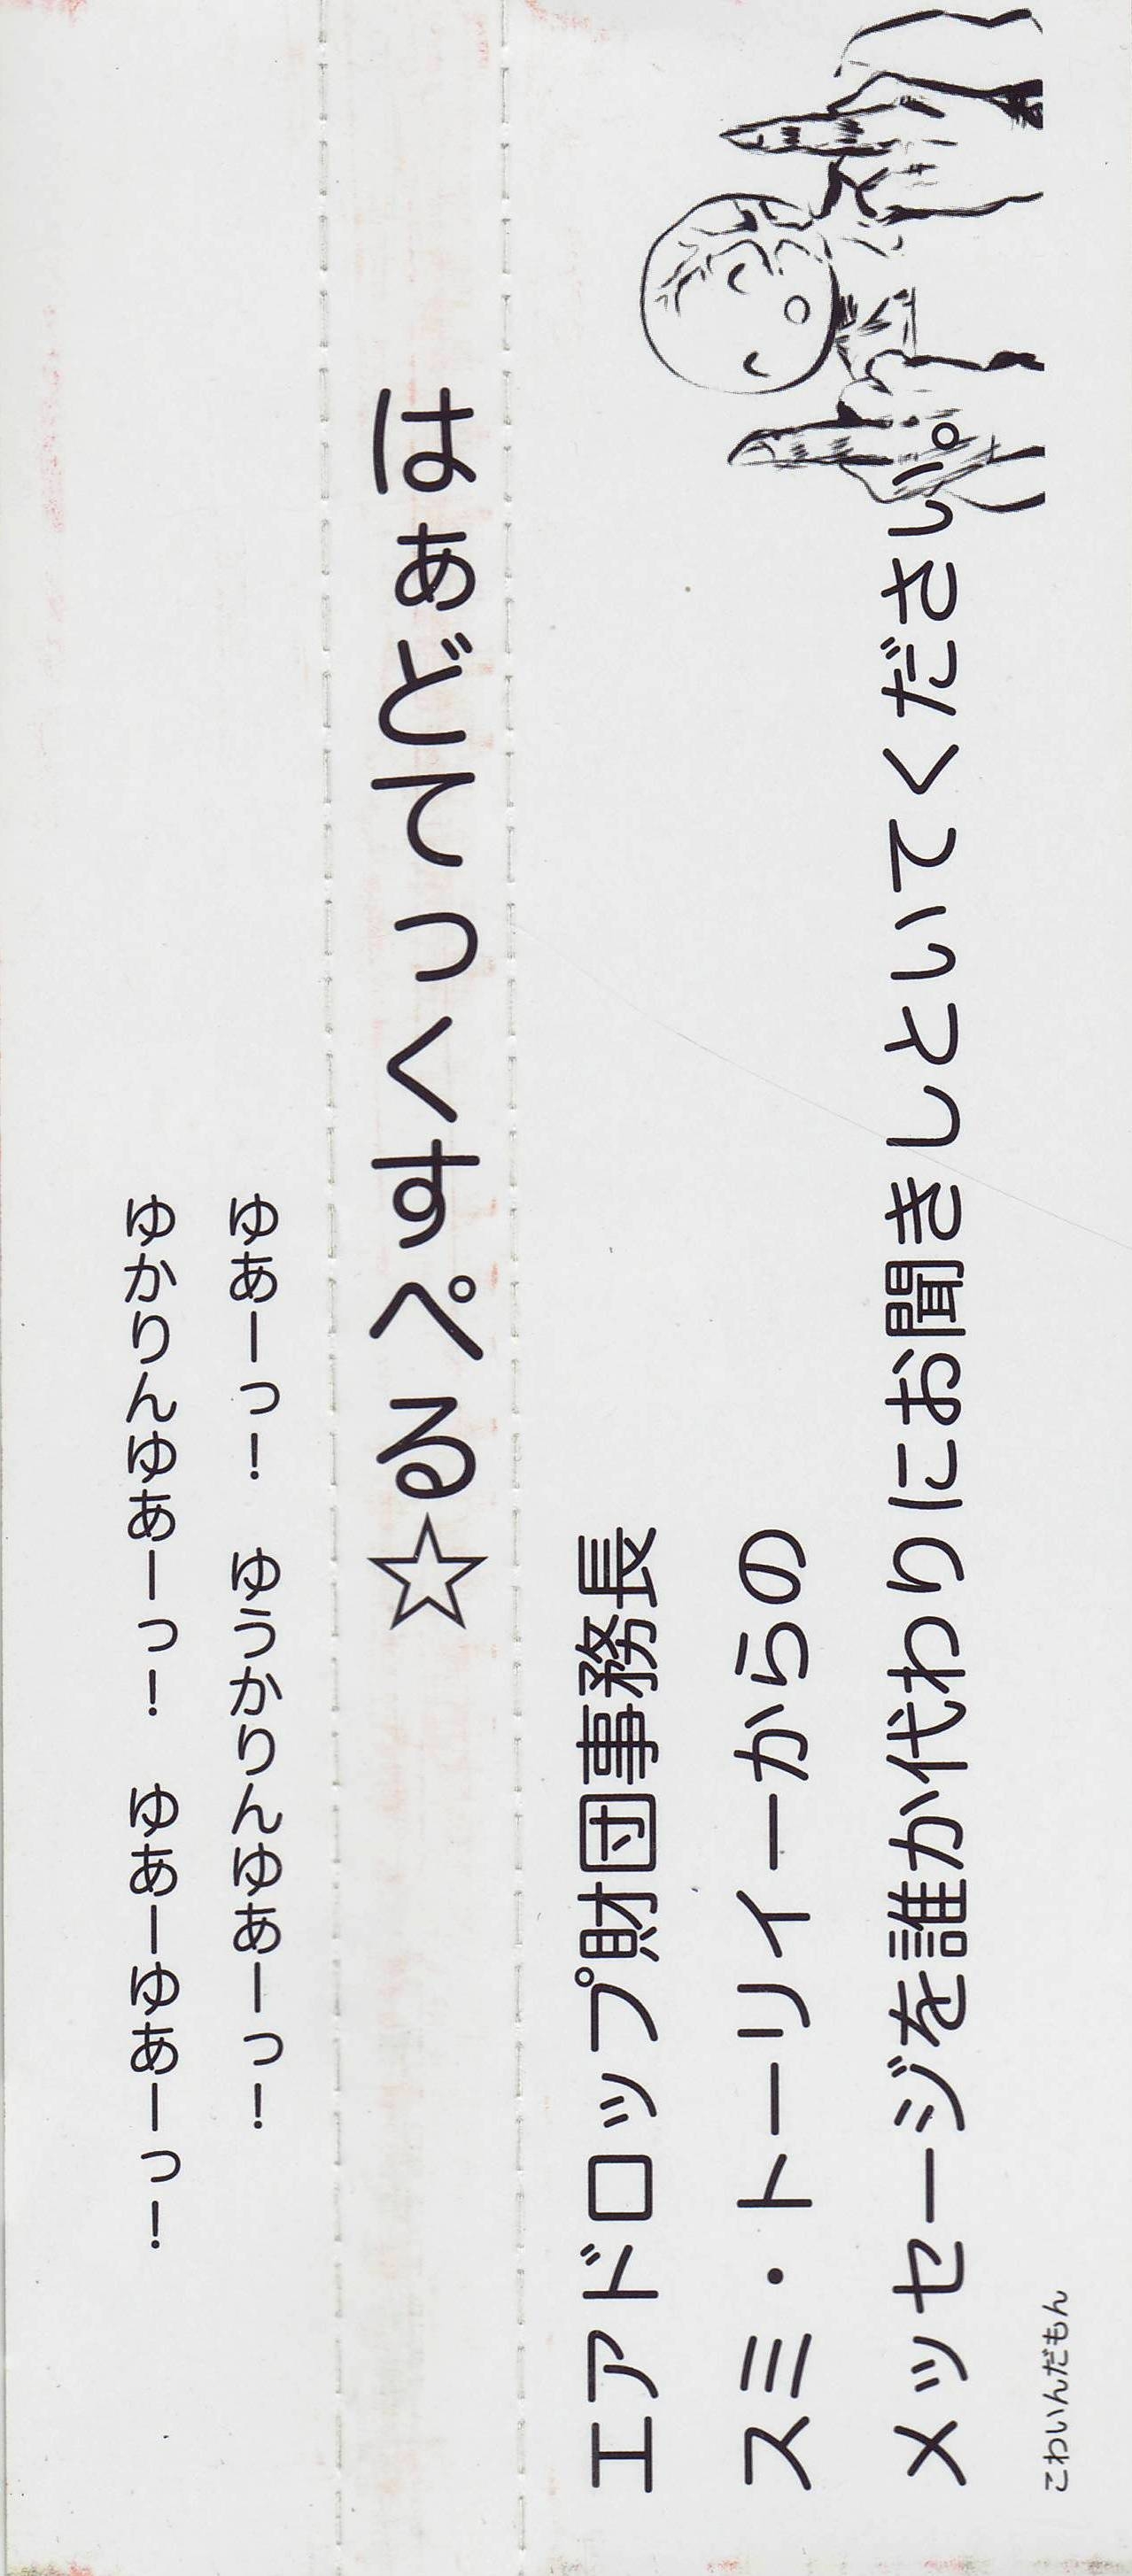 ゆあーっ!　ゆうかりんゆあーっ!
ゆかりんゆあーっ!　ゆあーゆあーっ!
はぁどてっくすぺる☆
エアドロップ財団事務長
スミ・トーリイーからの
メッセージを誰か代わりにお聞きしといてください。
こわいんだもん